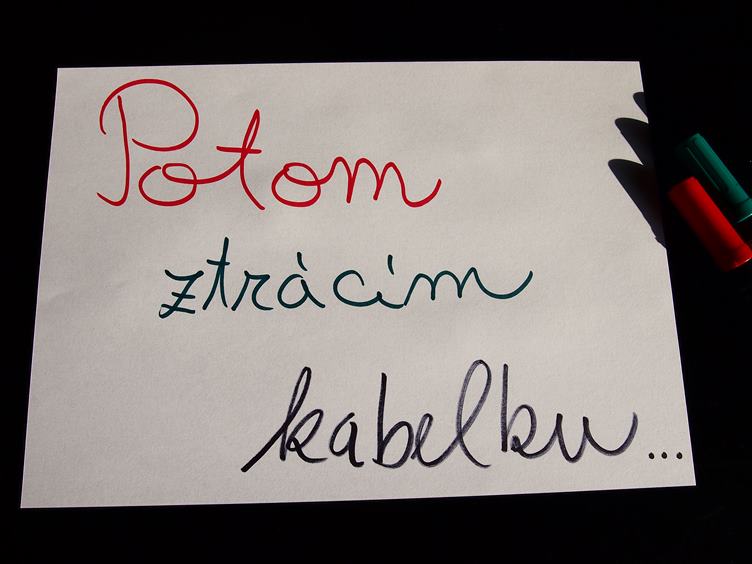 Potom
ztrácím
kabelku...